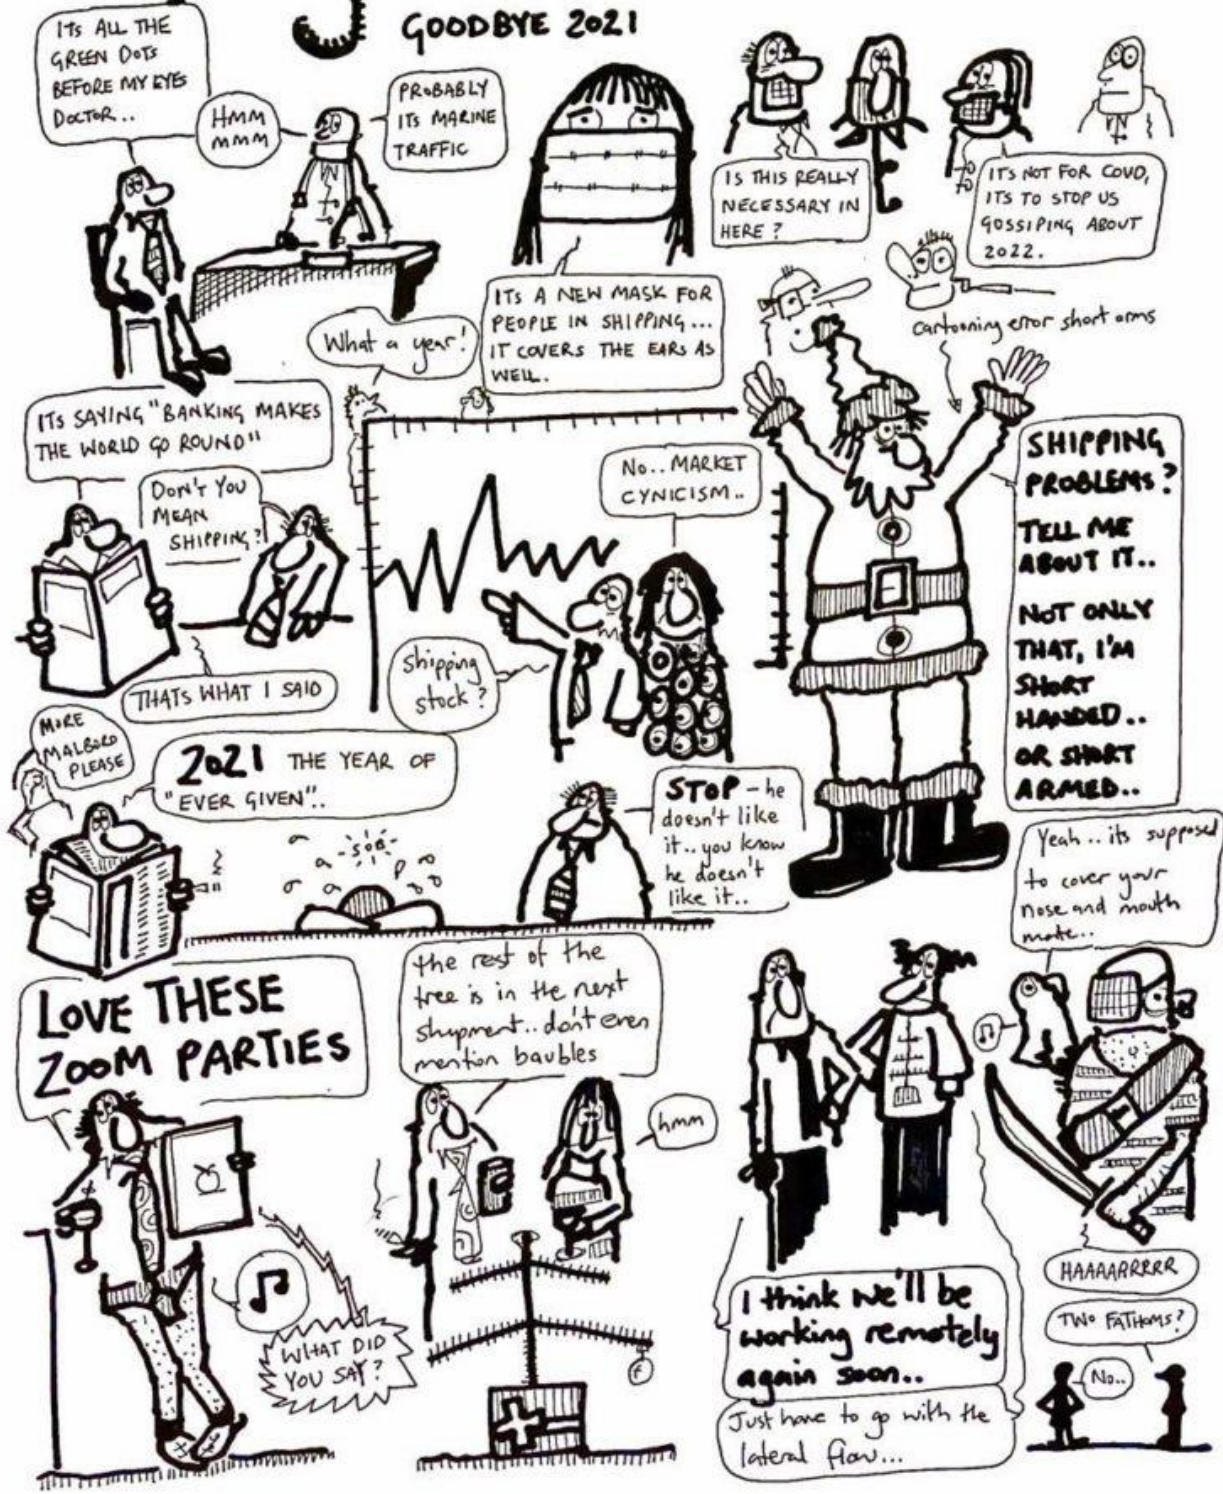 GOODBYE 2021
ITS ALL THE
GREEN DOTS
BEFORE MY EYES
DOCTOR..
HMM
MMM
PROBABLY
ITS MARINE
TRAFFIC
ITS A NEW MASK FOR
PEOPLE IN SHIPPING...
IT COVERS THE EARS AS
WELL.
IS THIS REALLY
NECESSARY IN
HERE?
ITS NOT FOR COVD,
ITS TO STOP US
GOSSIPING ABOUT
2022.
cartooning error short arms
What a year!
ITS SAYING "BANKING MAKES
THE WORLD GO ROUND"
DON'T YOU
MEAN
SHIPPING?
THATS WHAT I SAID
No.. MARKET
CYNICISM..
Shipping
stock?
SHIPPING
PROBLEMS?
TELL ME
ABOUT IT..
NOT ONLY
THAT, I'M
SHORT
HANDED..
OR SHORT
ARMED..
MORE
MALBORO
PLEASE
2021 THE YEAR OF
"EVER GIVEN"..
SOB
STOP - he
doesn't like
it.. you know
he doesn't
like it..
Yeah.. its supposed
to cover your
nose and mouth
mate..
LOVE THESE
ZOOM PARTIES
WHAT DID
YOU SAY?
the rest of the
tree is in the next
shipment.. don't even
mention baubles
hmm
f
I think we'll be
working remotely
again soon..
Just have to go with the
lateral flow...
HAAAARRRRR
TWO FATHOMS?
No..